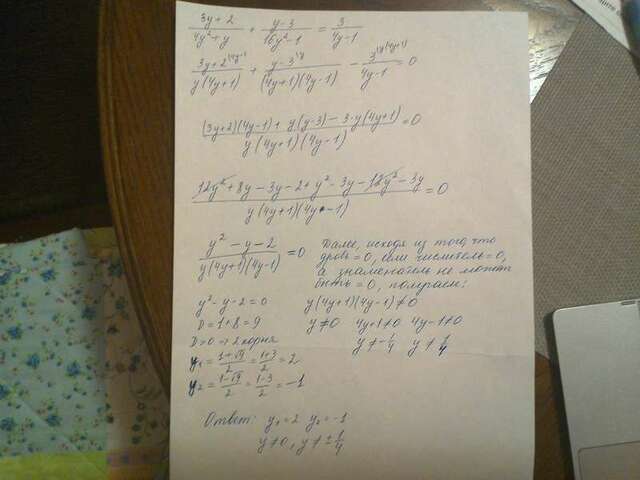 (3y+2)/(4y²+y) + (y-3)/(16y²-1) = 3/(4y-1)
(3y+2^{\4y-1})/(y(4y+1)) + (y-3^{\y})/((4y+1)(4y-1)) - (3^{\y(4y+1)})/(4y-1) = 0
((3y+2)(4y-1)+y(y-3)-3·y(4y+1))/(y(4y+1)(4y-1)) = 0
(12y²+8y-3y-2+y²-3y-12y²-3y)/(y(4y+1)(4y-1)) = 0
(y²-y-2)/(y(4y+1)(4y-1)) = 0 Далее, исходя из того, что
дробь=0, если числитель=0,
а знаменатель не может
быть=0, получаем:
y²-y-2=0 y(4y+1)(4y-1)≠0
D=1+8=9 y≠0 4y+1≠0 4y-1≠0
D>0 ⇒ 2 корня y≠-1/4 y≠1/4
y₁=(1+√9)/2=(1+3)/2=2
y₂=(1-√9)/2=(1-3)/2=-1
Ответ: y₁=2 y₂=-1
y≠0, y≠±1/4